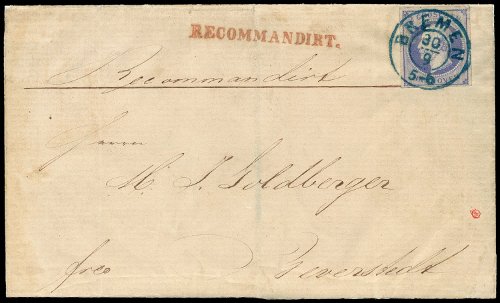 RECOMMANDIRT.
BREMEN
30
9
5-6
Recommandirt
Herrn
M. J. Goldberger
freo Beverstedt